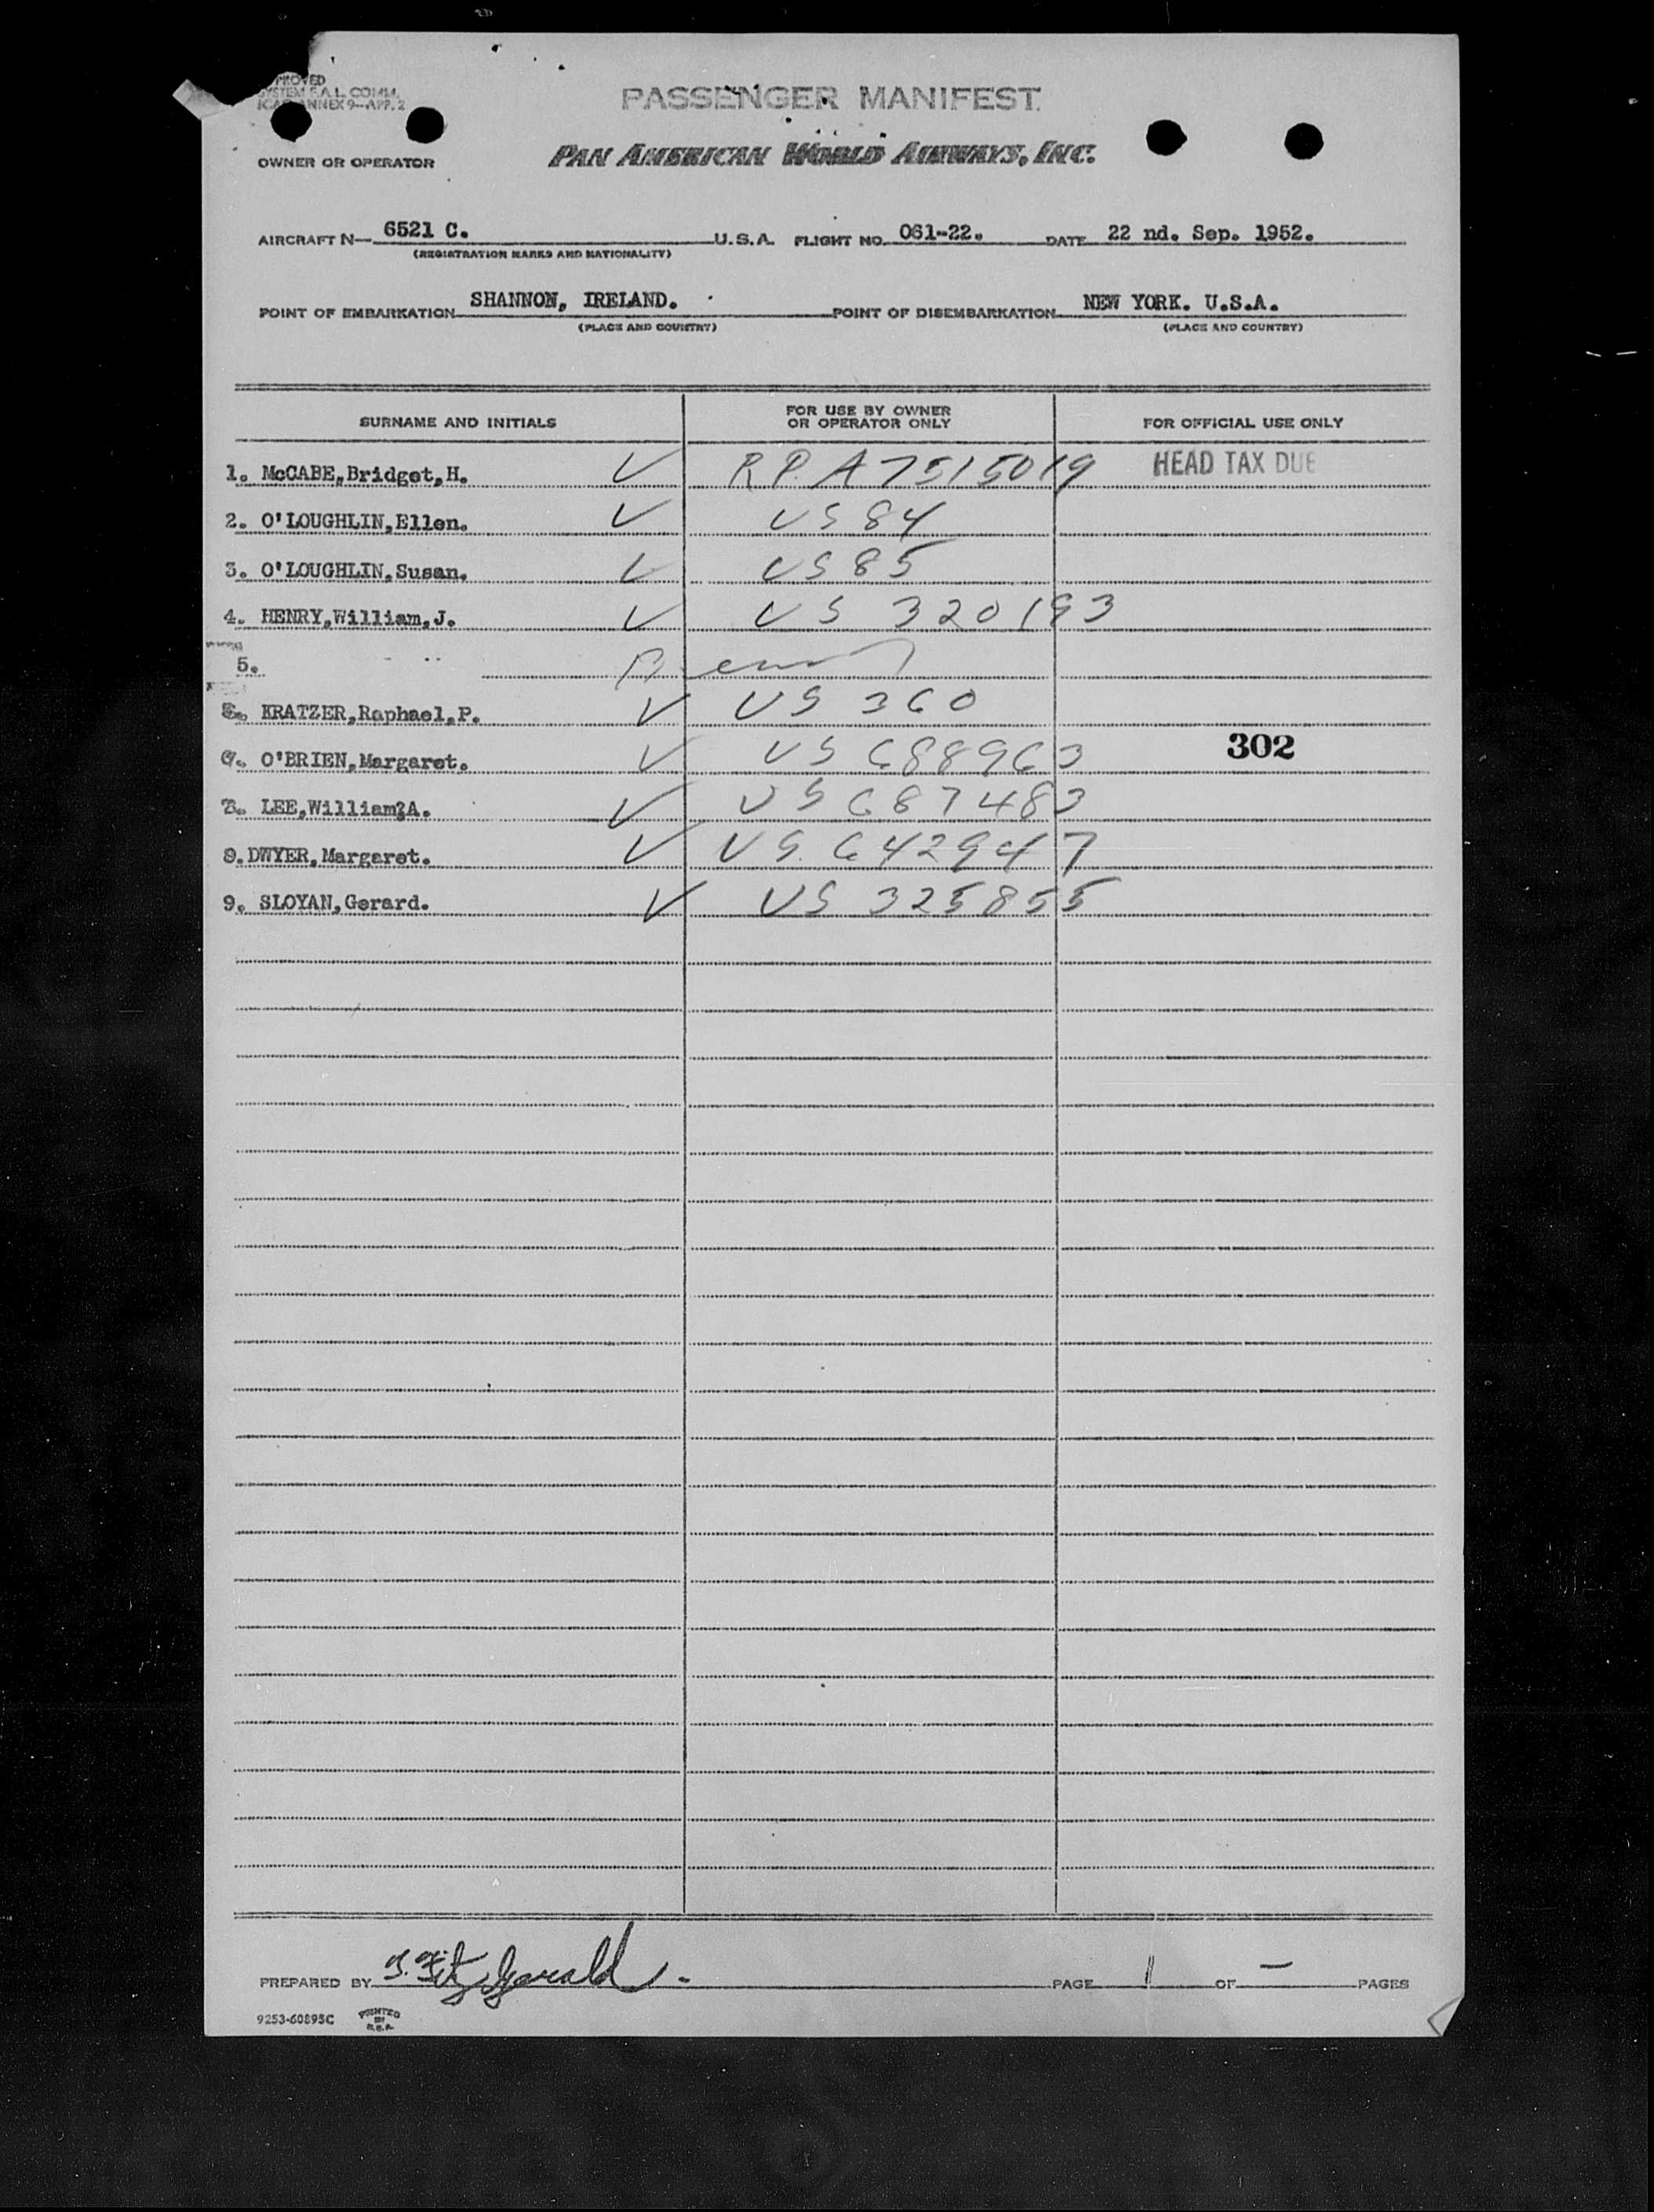 PROVED
SYSTEM F.A.L. COMM.
ICAO ANNEX 9—APP. 2
PASSENGER MANIFEST
OWNER OR OPERATOR PAN AMERICAN WORLD AIRWAYS, INC.
AIRCRAFT N— 6521 C. U.S.A. FLIGHT NO. 061-22. DATE 22 nd. Sep. 1952.
(REGISTRATION MARKS AND NATIONALITY)
POINT OF EMBARKATION SHANNON, IRELAND. POINT OF DISEMBARKATION NEW YORK. U.S.A.
(PLACE AND COUNTRY) (PLACE AND COUNTRY)
SURNAME AND INITIALS FOR USE BY OWNER OR OPERATOR ONLY FOR OFFICIAL USE ONLY
1. McCABE,Bridget,H. ✓ R.P. A7515019 HEAD TAX DUE
2. O'LOUGHLIN,Ellen. ✓ US 84
3. O'LOUGHLIN,Susan. ✓ US 85
4. HENRY,William,J. ✓ US 320193
5.
KRATZER,Raphael,P. ✓ US 360
O'BRIEN,Margaret. ✓ US 688963 302
LEE,William,A. ✓ US 687483
9. DWYER,Margaret. ✓ US 642947
9. SLOYAN,Gerard. ✓ US 325855
PREPARED BY J. Fitzgerald. PAGE 1 OF — PAGES
9253-60895C PRINTED IN U.S.A.